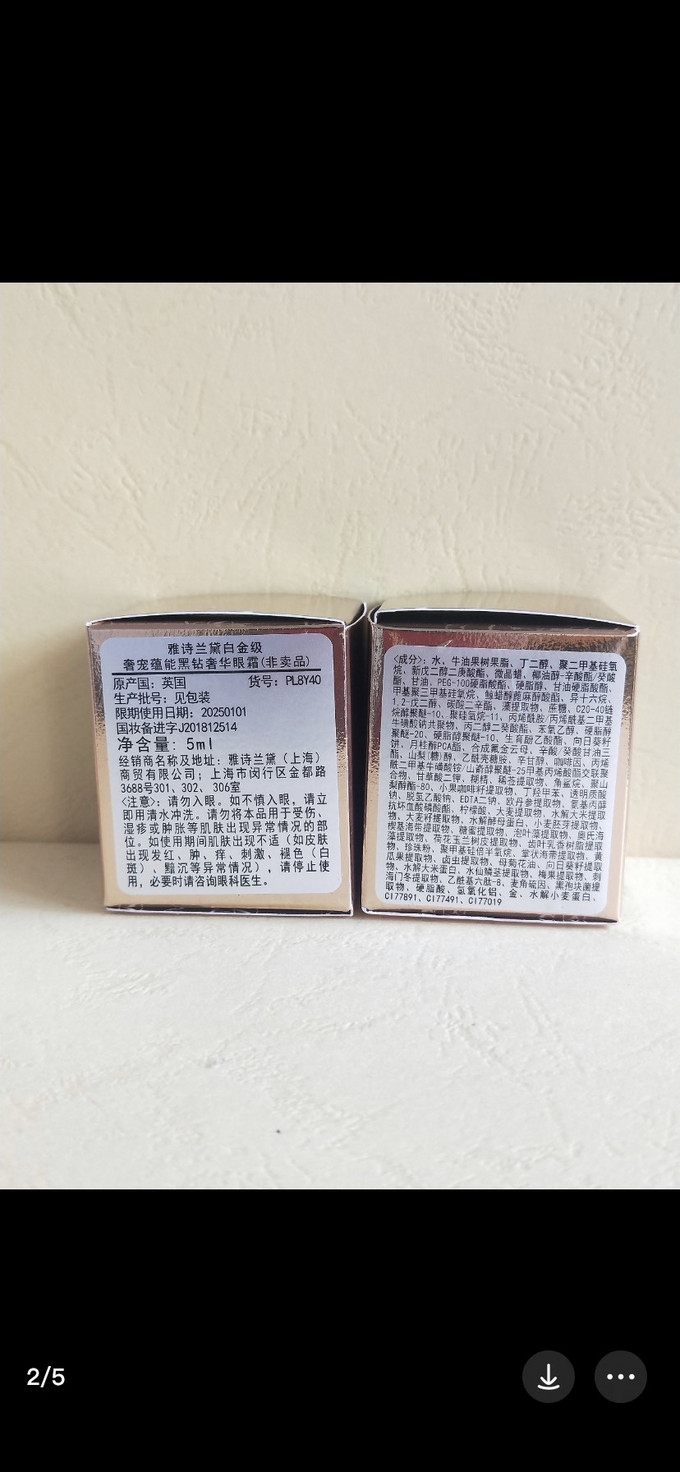 雅诗兰黛白金级
奢宠蕴能黑钻奢华眼霜(非卖品)
原产国: 英国 货号: PL8Y40
生产批号: 见包装
限期使用日期: 20250101
国妆备进字J201812514
净含量: 5ml
经销商名称及地址: 雅诗兰黛 (上海)
商贸有限公司; 上海市闵行区金都路
3688号301、302、306室
<注意>: 请勿入眼。如不慎入眼, 请立
即用清水冲洗。请勿将本品用于受伤、
湿疹或肿胀等肌肤出现异常情况的部
位。如使用期间肌肤出现不适 (如皮肤
出现发红、肿、痒、刺激、褪色 (白
斑) 、黯沉等异常情况) , 请停止使
用, 必要时请咨询眼科医生。
<成分>: 水、牛油果树果脂、丁二醇、聚二甲基硅氧
烷、新戊二醇二庚酸酯、微晶蜡、椰油醇-辛酸酯/癸酸
酯、甘油、PEG-100硬脂酸酯、硬脂醇、甘油硬脂酸酯、
甲基聚三甲基硅氧烷、鲸蜡醇蓖麻醇酸酯、异十六烷、
1,2-戊二醇、碳酸二辛酯、藻提取物、蔗糖、C20-40链
烷醇聚醚-10、聚硅氧烷-11、丙烯酰胺/丙烯酰基二甲基
牛磺酸钠共聚物、丙二醇二癸酸酯、苯氧乙醇、硬脂醇
聚醚-20、硬脂醇聚醚-10、生育酚乙酸酯、向日葵籽
饼、月桂醇PCA酯、合成氟金云母、辛酸/癸酸甘油三
酯、山梨(糖)醇、乙酰壳糖胺、辛甘醇、咖啡因、丙烯
酰二甲基牛磺酸铵/山嵛醇聚醚-25甲基丙烯酸酯交联聚
合物、甘草酸二钾、糊精、稀莶提取物、角鲨烷、聚山
梨醇酯-80、小果咖啡籽提取物、丁羟甲苯、透明质酸
钠、脱氢乙酸钠、EDTA二钠、欧丹参提取物、氨基丙醇
抗坏血酸磷酸酯、柠檬酸、大麦提取物、水解大米提取
物、大麦籽提取物、水解酵母蛋白、小麦胚芽提取物、
楔基海带提取物、糖蜜提取物、泡叶藻提取物、奥氏海
藻提取物、荷花玉兰树皮提取物、齿叶乳香树脂提取
物、珍珠粉、聚甲基硅倍半氧烷、掌状海带提取物、黄
瓜果提取物、卤虫提取物、母菊花油、向日葵籽提取
物、水解大米蛋白、水仙鳞茎提取物、梅果提取物、刺
海门冬提取物、乙酰基六肽-8、麦角硫因、黑孢块菌提
取物、硬脂酸、氢氧化铝、金、水解小麦蛋白、
CI77891、CI77491、CI77019
2/5